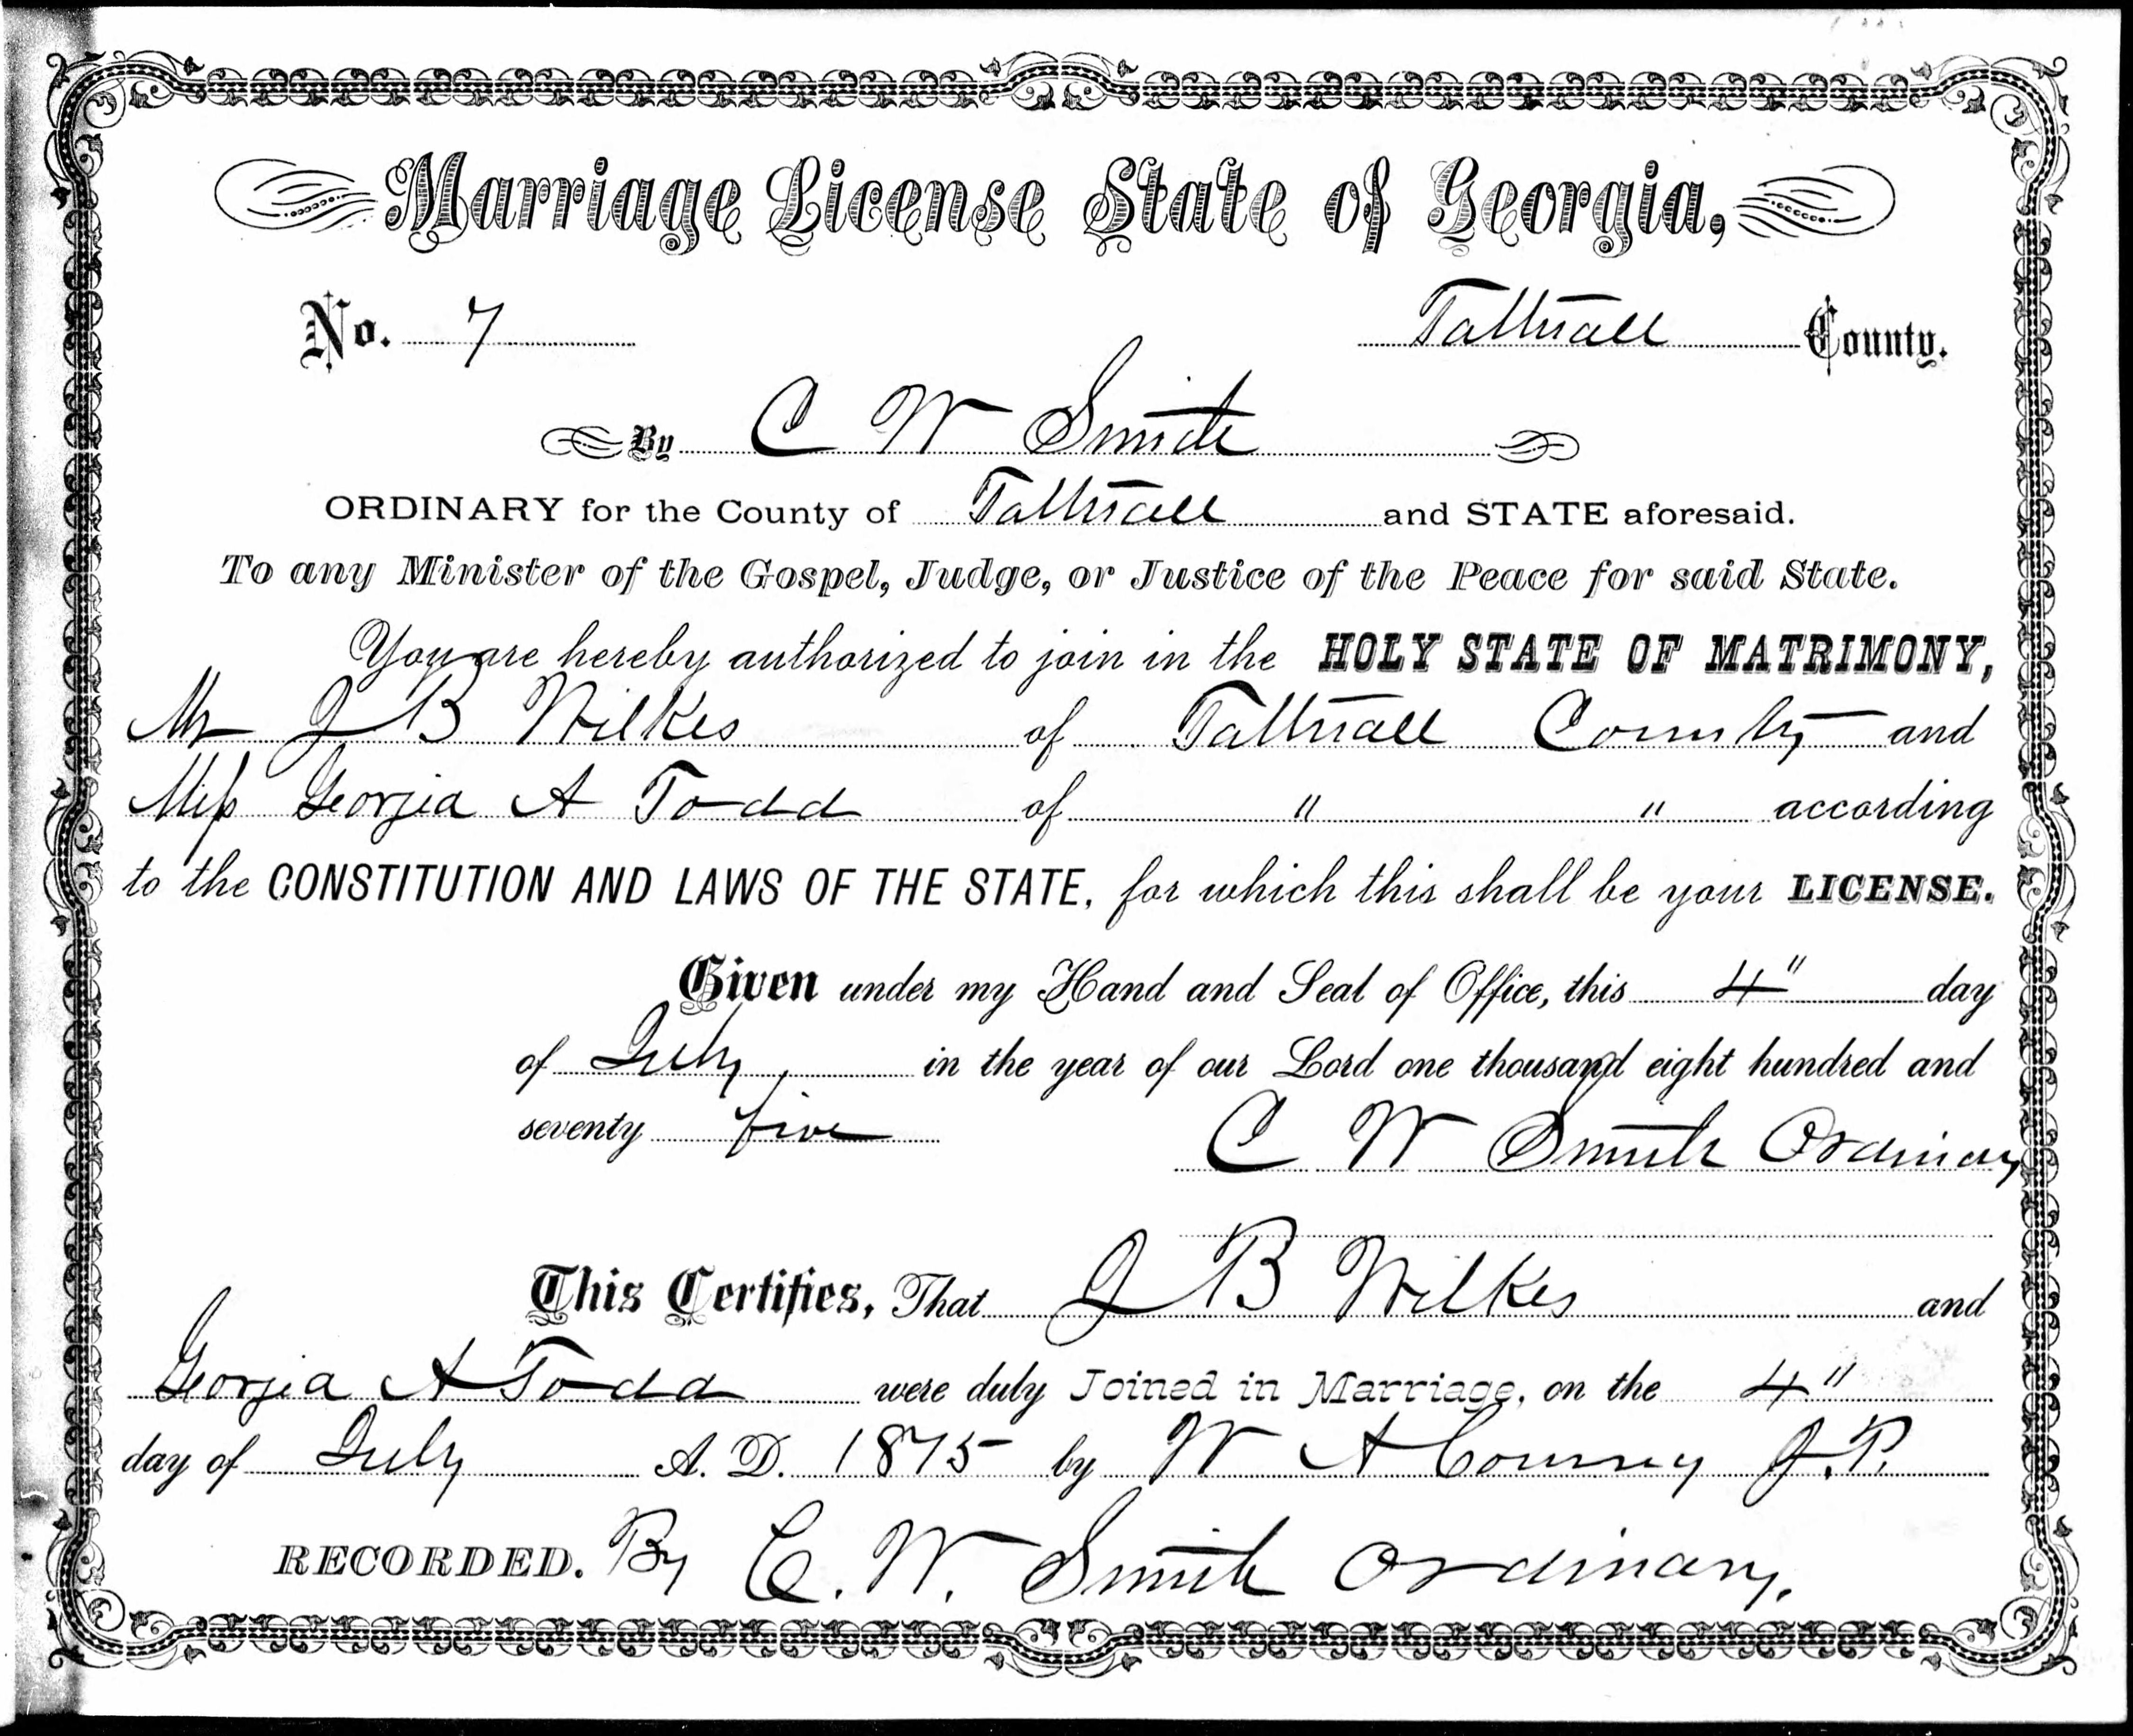 Marriage License State of Georgia,
No. 7 Tattnall County.
By C W Smith
ORDINARY for the County of Tattnall and STATE aforesaid.
To any Minister of the Gospel, Judge, or Justice of the Peace for said State.
You are hereby authorized to join in the HOLY STATE OF MATRIMONY,
Mr J B Wilkes of Tattnall County and
Miss Georgia A Todd of " " according
to the CONSTITUTION AND LAWS OF THE STATE, for which this shall be your LICENSE.
Given under my Hand and Seal of Office, this 4" day
of July in the year of our Lord one thousand eight hundred and
seventy five
C W Smith Ordinary
This Certifies, That J B Wilkes and
Georgia A Todd were duly Joined in Marriage, on the 4"
day of July A. D. 1875 by W A J.P.
RECORDED. By C. W. Smith Ordinary.